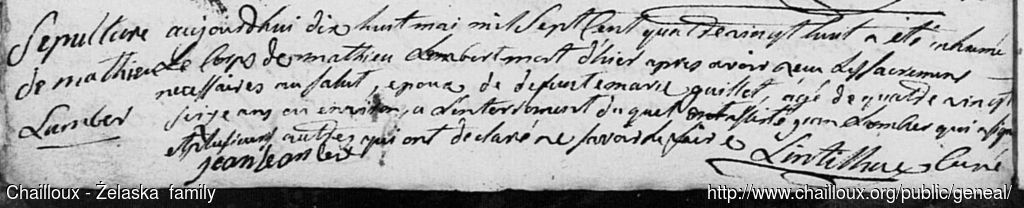 Sepulture
de mathieu
Lamber
aujourdhui dix huit mai mil sept Cent quatre vingt huit a eté inhumé
Le corps de mathieu Lambert mort d'hier apres avoir reçu Les sacremens
necessaires au salut, epoux de defunte marie guillet agé de quatre vingt
seize ans ou environ, a L'enterrement duquel ont assisté jean Lamber qui a signé
et plusieurs autres qui ont declaré ne savoir le faire
jean lamber
Lintilhac Curé
Chailloux - Żelaska family
http://www.chailloux.org/public/geneal/